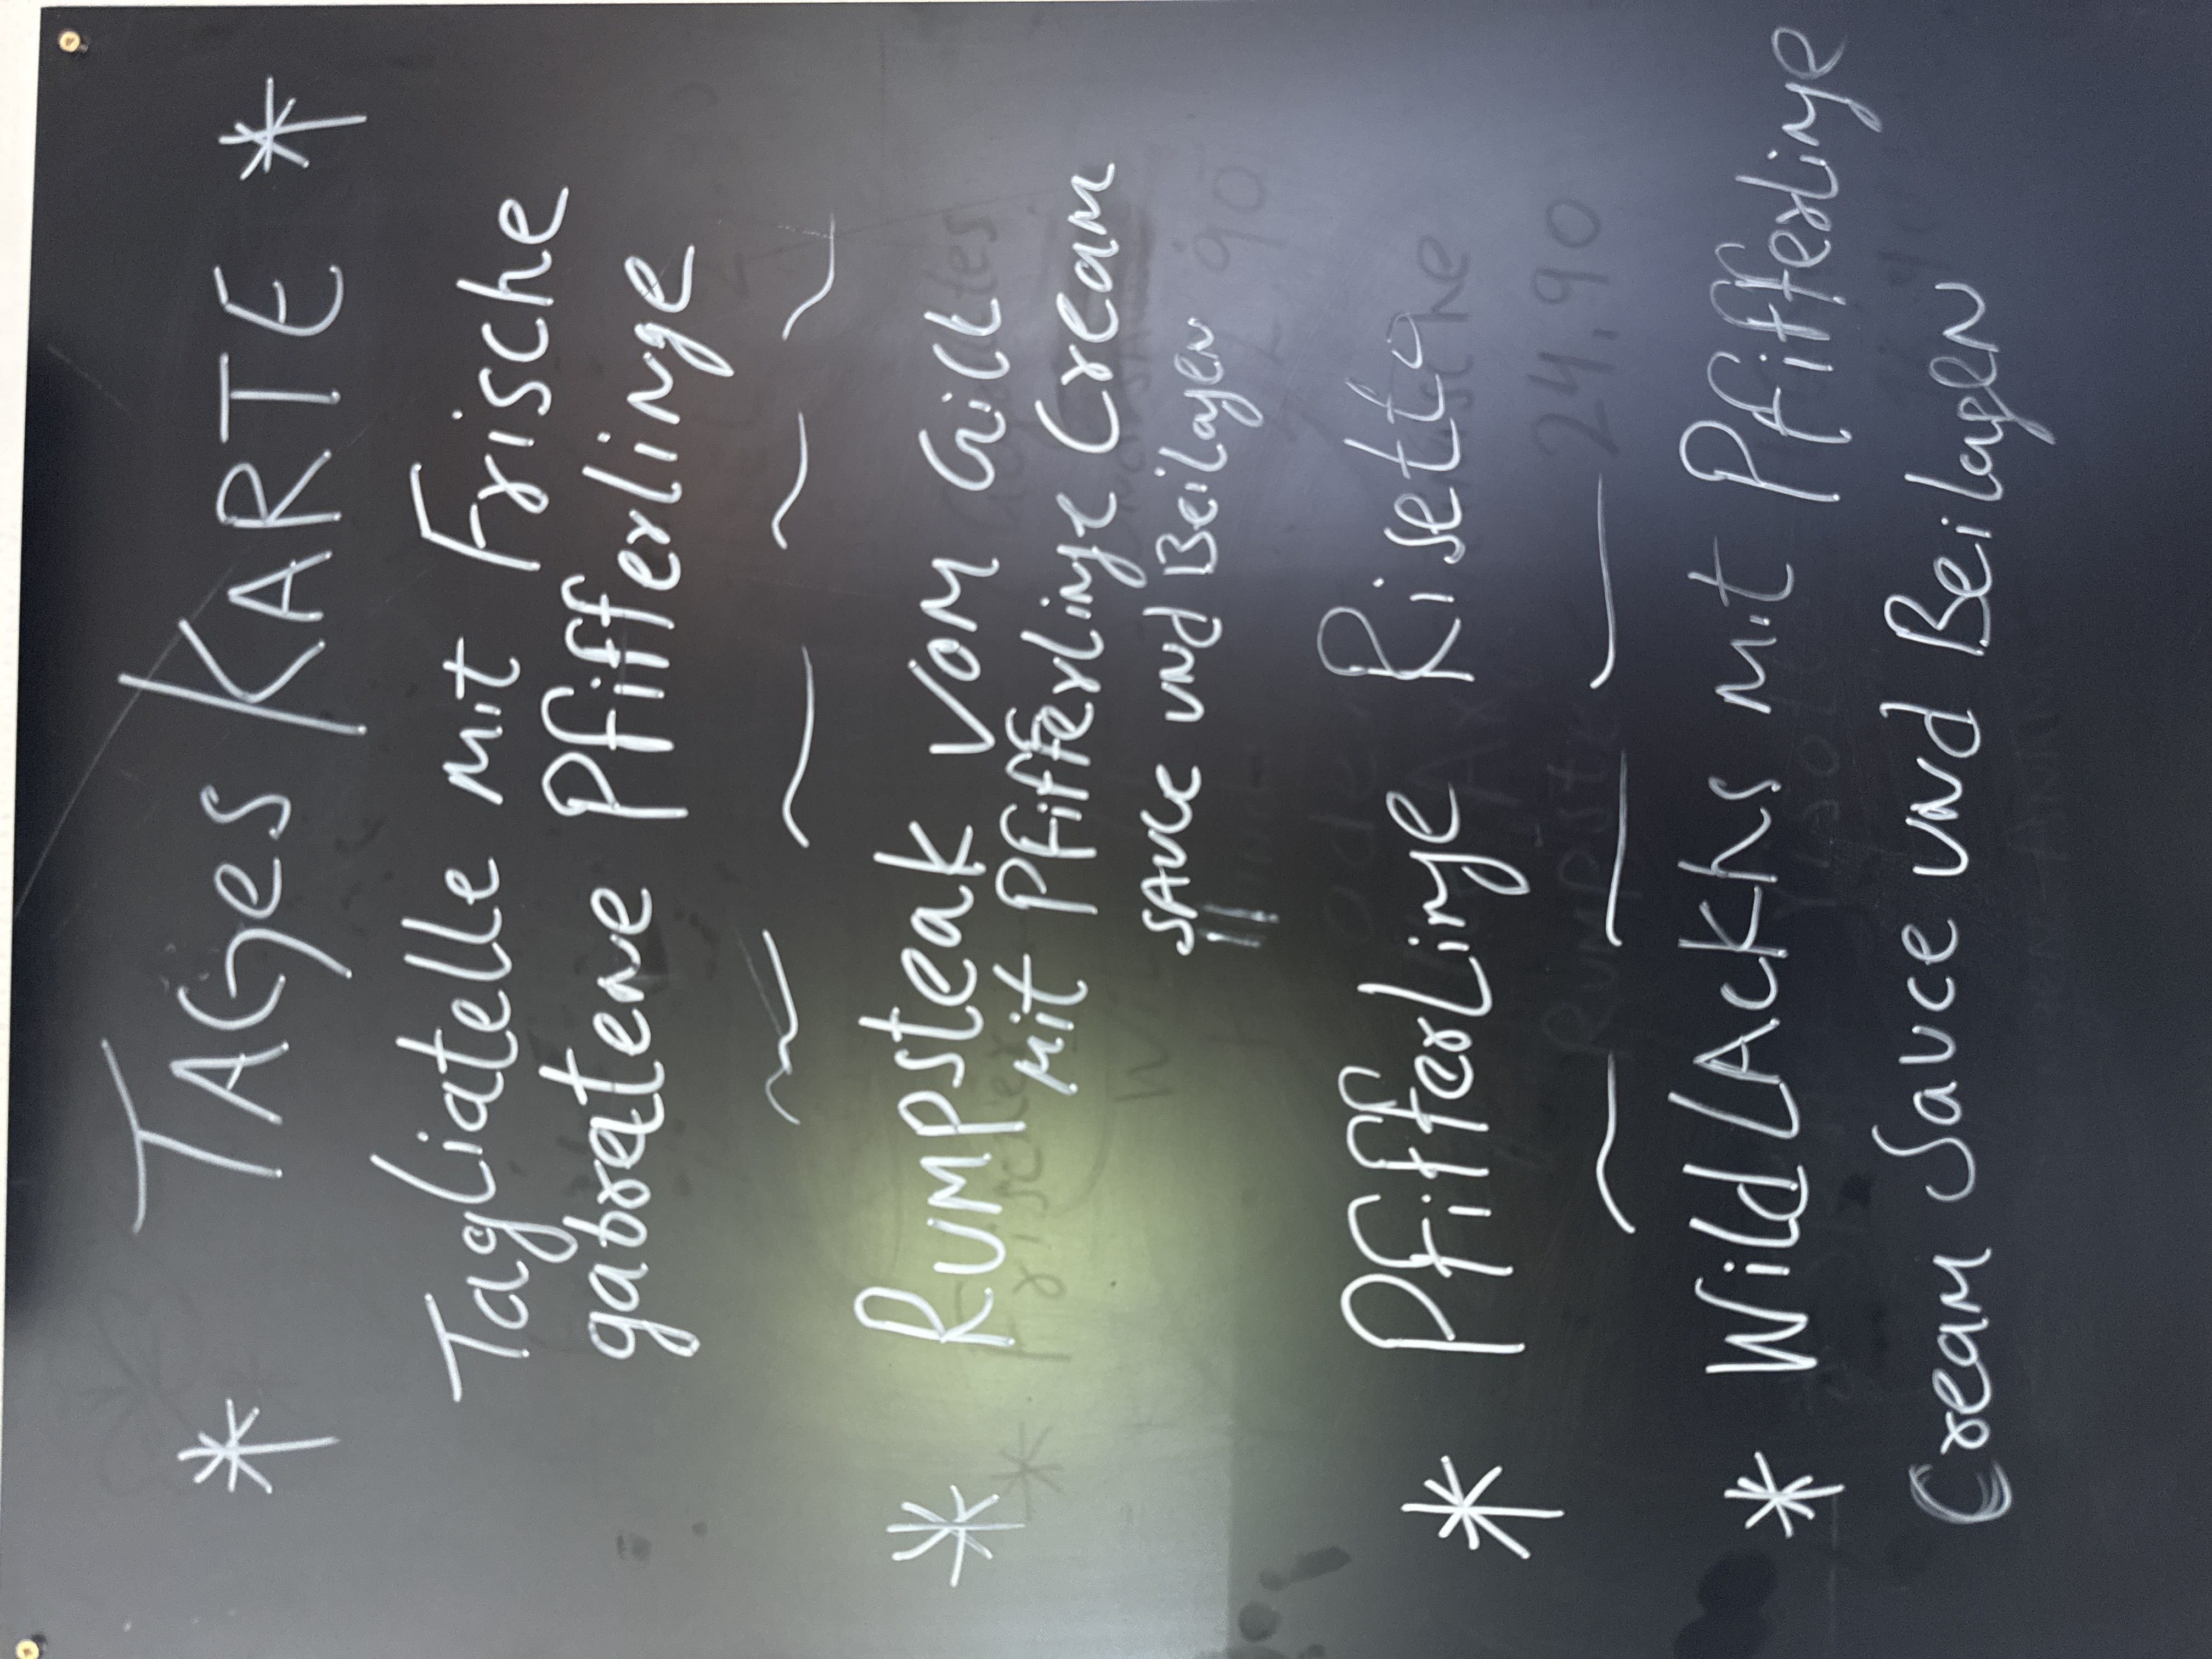 * TAGes KARTE *
Tagliatelle mit Frische
gabratene Pfifferlinge
* Rumpsteak vom Grill
mit Pfifferlinge Cream
sauce und Beilagen
* Pfifferlinge Risetto
* Wild LAckhs mit Pfifferlinge
Cream Sauce und Beilagen